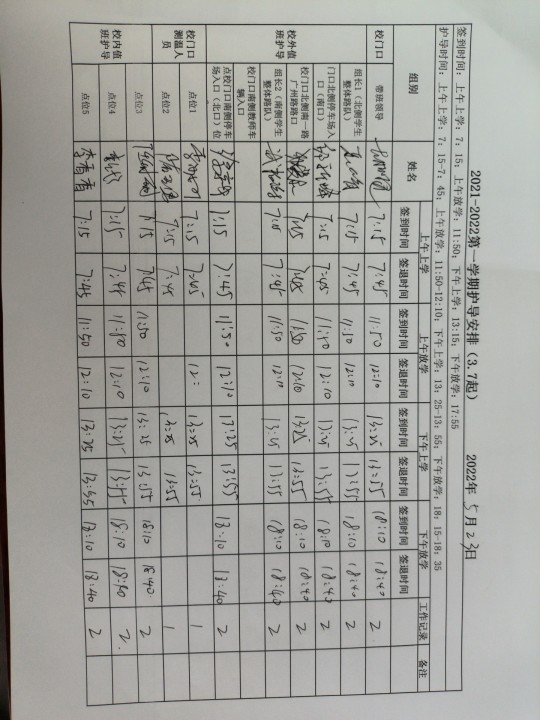 2021-2022第一学期护导安排（3.7起） 2022年 5月23日
签到时间：上午上学：7：15；上午放学：11:50；下午上学：13:15；放学：17:55
护导时间：上午上学：7：15-7：45；上午放学：11:50-12:10；下午上学：13：25-13：55；下午放学：18：15-18：35
组别 姓名 上午上学 上午放学 下午上学 下午放学 工作记录 备注
签到时间 签退时间 签到时间 签退时间 签到时间 签退时间 签到时间 签退时间
校门口 带班领导 7:15 7:45 11:50 12:10 13:25 13:55 18:10 18:40 2
校外值班护导 组长1（北侧学生整体路队） 7:15 7:45 11:50 12:10 13:25 13:55 18:10 18:40 2
门口北侧停车场入口（南口） 7:15 7:45 11:50 12:10 13:25 13:55 18:10 18:40 2
校门口北侧南一路广州路路口 7:15 7:45 11:50 12:10 13:25 13:55 18:10 18:40 2
组长2（南侧学生整体路队） 7:15 7:45 11:50 12:10 13:25 13:55 18:10 18:40 2
校门口南侧教师车辆入口
点校门口南侧停车场入口（北口）位 7:15 7:45 11:50 12:10 13:25 13:55 18:10 18:40 2
校门口测温人员 点位1 7:15 7:45 12: 13:25 13:55 1
点位2 7:15 7:45 13:25 13:55 1
校内值班护导 点位3 7:15 7:45 11:50 12:10 13:25 13:55 18:10 18:40 2
点位4 7:15 7:45 11:50 12:10 13:25 13:55 18:10 18:40 2
点位5 李香香 7:15 7:45 11:50 12:10 13:25 13:55 18:10 18:40 2